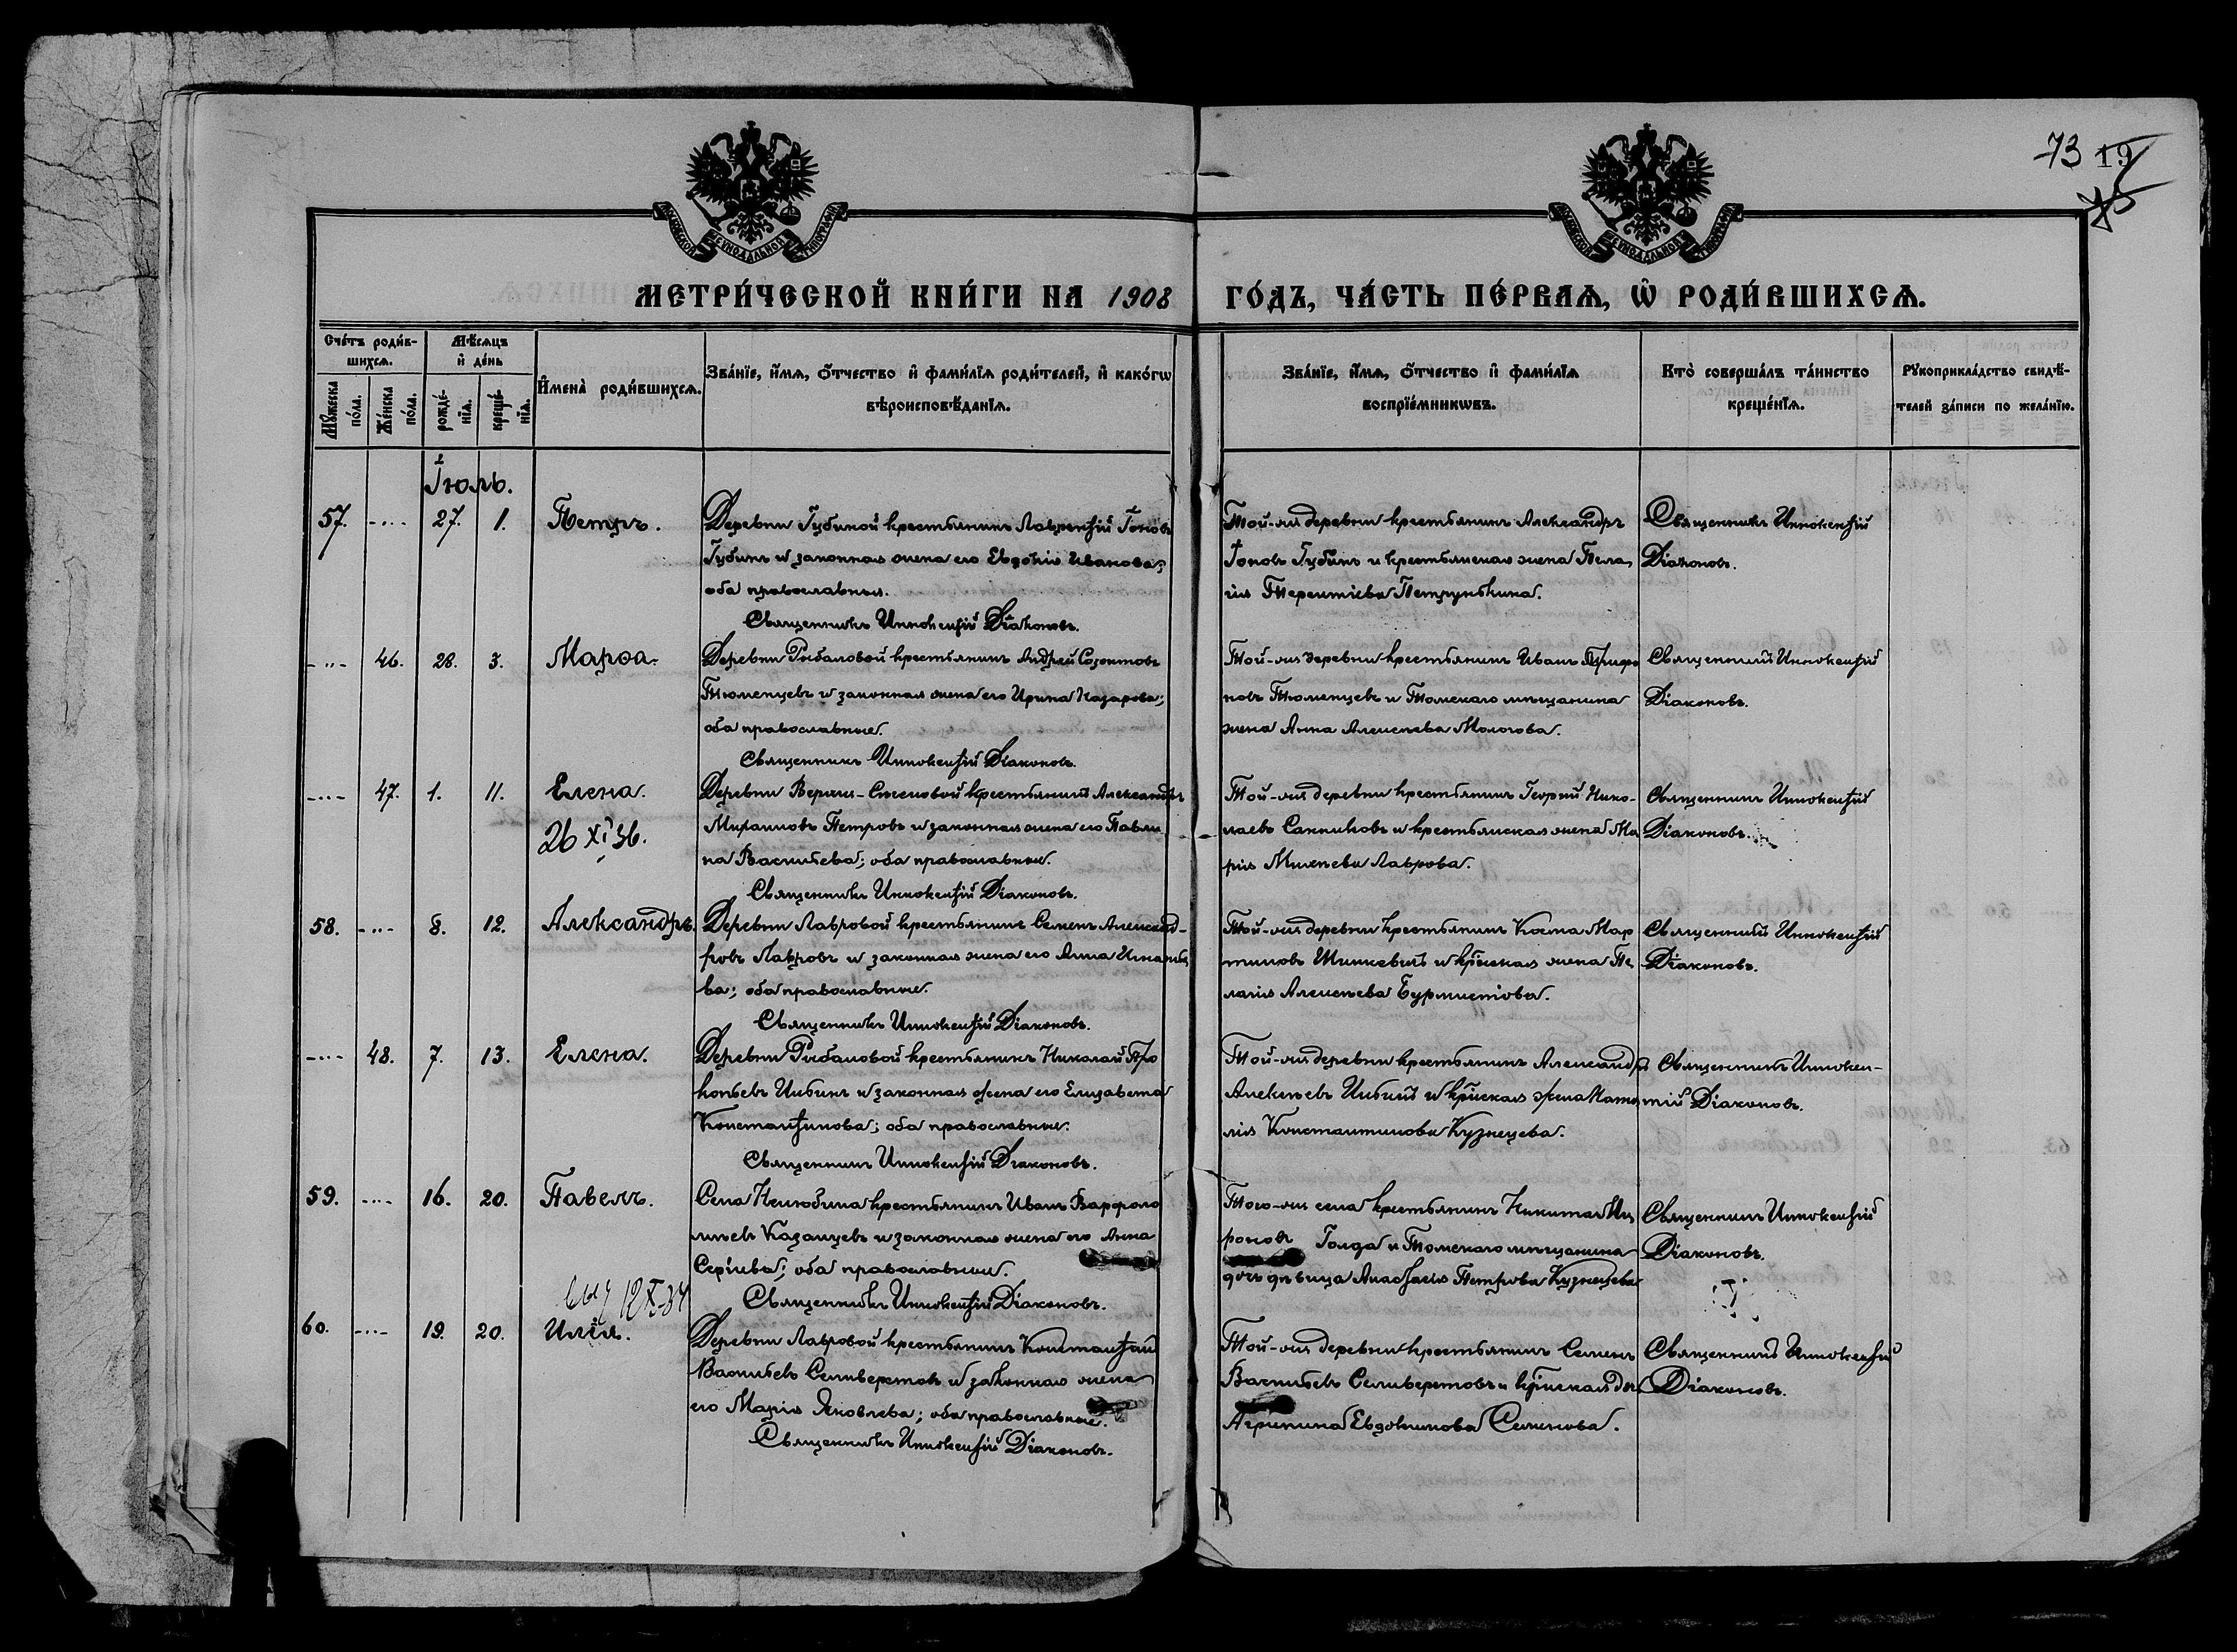 73 19
75
МОСКОВСКОЙ СѴНОДАЛЬНОЙ ТИПОГРАФІИ
МОСКОВСКОЙ СѴНОДАЛЬНОЙ ТИПОГРАФІИ
МЕТРИ́ЧЕСКОЙ КНИ́ГИ НА 1908 ГО́ДЪ, ЧА́СТЬ ПЕ́РВАѦ, Ѡ҆ РОДИ́ВШИХСѦ.
Сче́тъ роди́в-
шихсѧ.
Мѣ́сѧцъ
и҆ де́нь
Мꙋ́жеска
по́ла.
Же́нска
по́ла.
рожде́-
нїѧ.
креще́-
нїѧ.
И҆мена̀ роди́вшихсѧ.
Зва́нїе, и҆́мѧ, ѻ҆́тчество и҆ фами́лїѧ роди́телей, и҆ како́гѡ
вѣроисповѣ́данїѧ.
Зва́нїе, и҆́мѧ, ѻ҆́тчество и҆ фами́лїѧ
воспрїе́мникѡвъ.
Кто̀ соверша́лъ та́инство
креще́нїѧ.
Рꙋкоприкла́дство свидѣ́-
телей за́писи по жела́нїю.
Іюль.
57. -..- 27. 1. Петръ.
Деревни Губиной крестьянинъ Лаврентій Іоновъ
Губинъ и законная жена его Евдокія Иванова;
оба православныя.
Священникъ Иннокентій Діаконовъ.
Той-же деревни крестьянинъ Александръ
Іоновъ Губинъ и крестьянская жена Пела
гія Терентіева Петрунькина.
Священникъ Иннокентій
Діаконовъ.
-..- 46. 28. 3. Марѳа.
Деревни Рыбаловой крестьянинъ Андрей Созонтовъ
Тюменцевъ и законная жена его Ирина Назарова;
оба православные.
Священникъ Иннокентій Діаконовъ.
Той-же деревни крестьянинъ Иванъ Трифо
новъ Тюменцевъ и Томскаго мѣщанина
жена Анна Алексѣева Мологова.
Священникъ Иннокентій
Діаконовъ.
-..- 47. 1. 11. Елена.
26 XI 36.
Деревни Верхне-Сѣченовой крестьянинъ Александръ
Мироновъ Петровъ и законная жена его Павли
на Васильева; оба православные.
Священникъ Иннокентій Діаконовъ.
Той-же деревни крестьянинъ Георгій Нико-
лаевъ Санниковъ и крестьянская жена Ма
рія Михеева Лаврова.
Священникъ Иннокентій
Діаконовъ.
58. -..- 8. 12. Александръ.
Деревни Лавровой крестьянинъ Семенъ Александ-
ровъ Лавровъ и законная жена его Анна Игнатье
ва; оба православные.
Священникъ Иннокентій Діаконовъ.
Той-же деревни крестьянинъ Косма Мар
тиновъ Шинкевичъ и кр̃нская жена Пе
лагія Алексѣева Бурмистова.
Священникъ Иннокентій
Діаконовъ.
-..- 48. 7. 13. Елена.
Деревни Рыбаловой крестьянинъ Николай Про
копьевъ Цибинъ и законная жена его Елизавета
Константинова; оба православные.
Священникъ Иннокентій Діаконовъ.
Той-же деревни крестьянинъ Александръ
Алексѣевъ Цибинъ и кр̃нская жена Ната
лія Константинова Кузнецева.
Священникъ Иннокен-
тій Діаконовъ.
59. -..- 16. 20. Павелъ.
Села Нелюбина крестьянинъ Иванъ Варфоло
мѣевъ Казанцевъ и законная жена его Анна
Сергіева; оба православные.
Священникъ Иннокентій Діаконовъ.
Того-же села крестьянинъ Никита Ми
роновъ Голда и Томскаго мѣщанина
дочь дѣвица Анастасія Петрова Кузнецева
Священникъ Иннокентій
Діаконовъ.
12 X-34
60. -..- 19. 20. Илія.
Деревни Лавровой крестьянинъ Константинъ
Васильевъ Селиверстовъ и законная жена
его Марія Яковлева; оба православные.
Священникъ Иннокентій Діаконовъ.
Той-же деревни крестьянинъ Семенъ
Васильевъ Селиверстовъ и кр̃нская дѣв
Агрипина Евдокимова Семенова.
Священникъ Иннокентій
Діаконовъ.